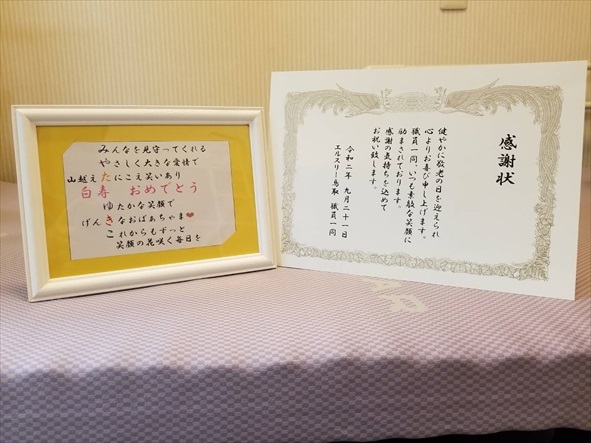 みんなを見守ってくれる
やさしく大きな愛情で
山越えたにこえ笑いあり
白寿 おめでとう
ゆたかな笑顔で
げんきなおばあちゃま❤
これからもずっと
笑顔の花咲く毎日を
感謝状
健やかに敬老の日を迎えられ
心よりお喜び申し上げます。
職員一同、いつも素敵な笑顔に
励まされております。
感謝の気持ちを込めて
お祝い致します。
令和二年 九月二十一日
エルスリー鳥取 職員一同